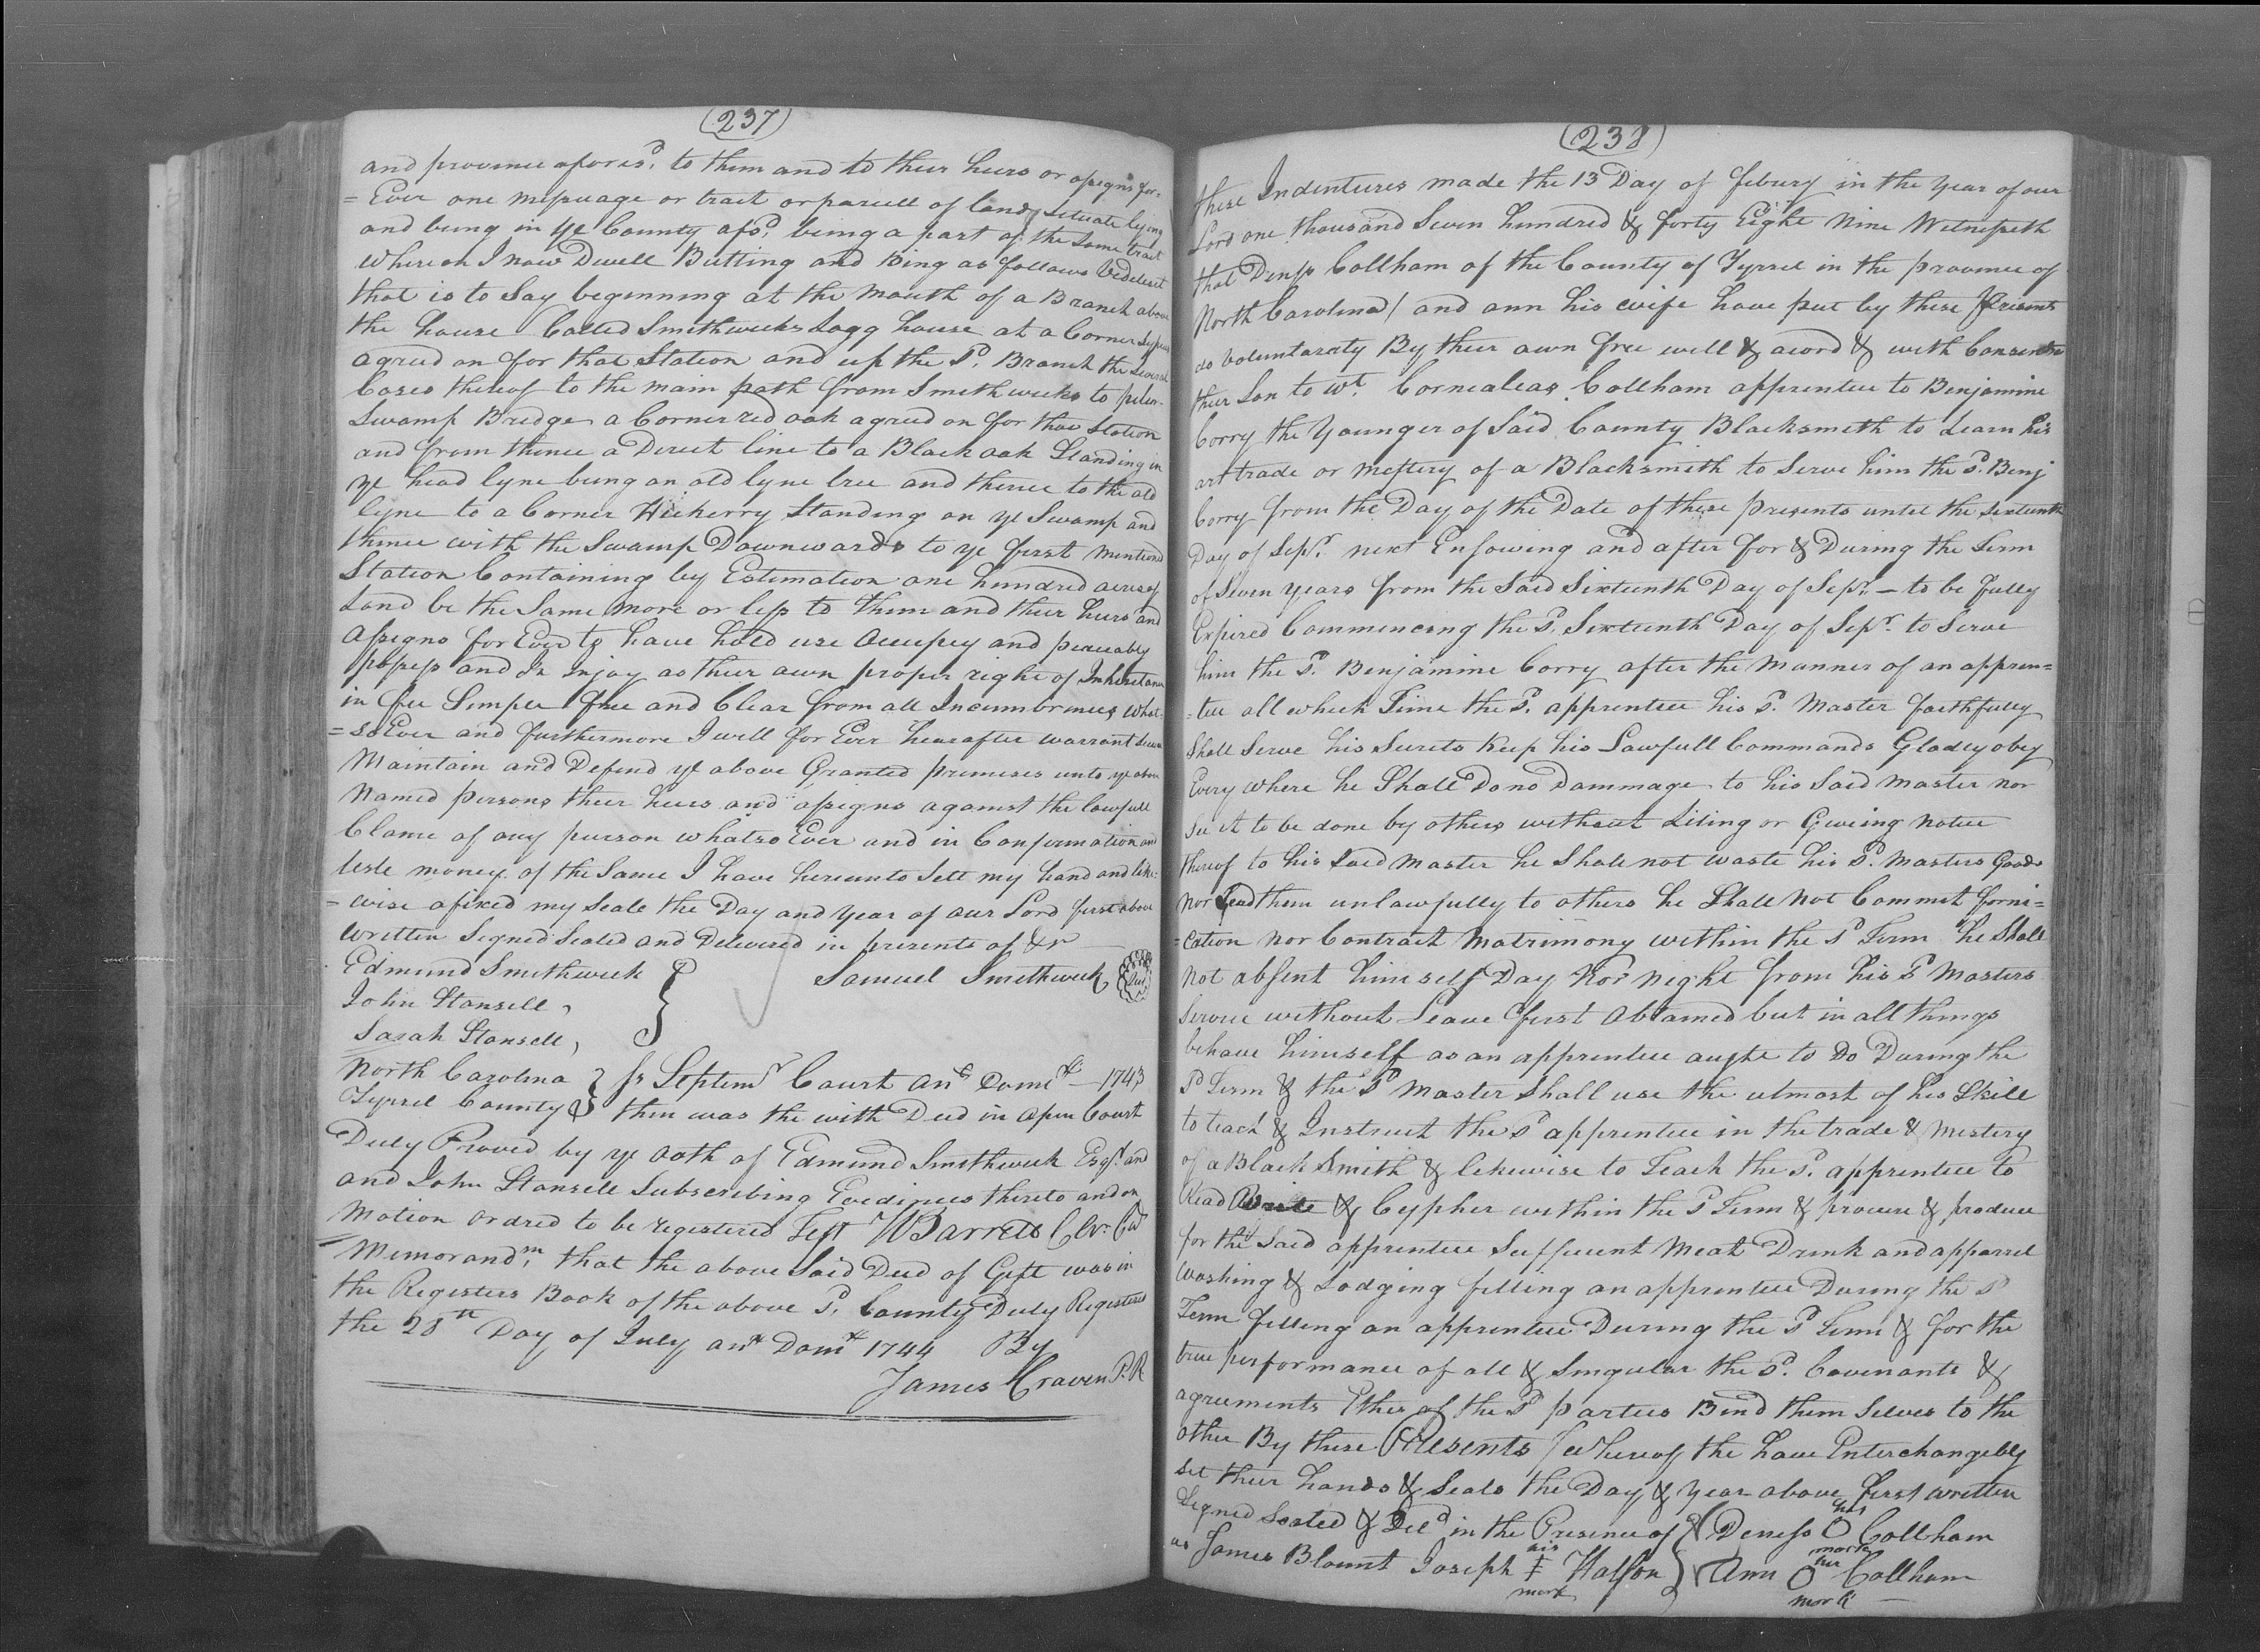 (237)
and province aforesd. to them and to their heirs or assigns for-
=Ever one messuage or tract or parcell of land situate lying
and being in ye County afsd. being a part of the Same tract
Whereon I now Dwell Butting and Bing as follows Vedelicit
that is to Say beginning at the mouth of a Branch above
the house Called Smithwicks Logg house at a Corner Sypus
agreed on for that Station and up the Sd. Branch the Several
Coses thereof to the main path from Smithwicks to
Swamp Bridge a Corner red oak agreed on for that Station
and from thence a Direct line to a Black oak Standing in
ye head lyne being an old lyne tree and thence to the old
lyne to a Corner Hickerry Standing on ye Swamp and
thence with the Swamp Downwards to ye first mentiond
Station Containing by Estimation one hundred acres of
Land be the Same more or less to them and their heirs and
Assigns for Ever to have hold use Occupey and peaceably
possess and In Injoy as their own proper right of Inheritance
in fee Simple free and Clear from all Incumbrinces what-
=soEver and furthermore I will for Ever hearafter warrant Secure
Maintain and Defend ye above Granted premises unto ye above
Named persons their heirs and assigns against the lawfull
Clame of any person whatsoEver and in Confirmation and
teste mony of the Same I have hereunto Sett my hand and like:
=wise afixed my Seale the Day and year of our Lord first above
Written Signed Sealed and Delivered in presents of &r
Edmund Smithwick Samuel Smithwick Seal
John Stansell,
Sarah Stansell,
North Carolina } Ss Septemr Court ano Dome 1743
Tyrrel County } then was the with Deed in open Court
Duly Proved by ye oath of Edmund Smithwick Esqr. and
and John Stansell Subscribing Evedinces thereto and on
Motion ordred to be registered Test WBarrett Clr. Cur
Memorandm, that the above Said Deed of Gift was in
the Registers Book of the above Sd. County Duly Registered
the 28th Day of July ano Domi 1744 By
James Craven P.R
(238)
these Indentures made the 13 Day of febury in the year of our
Lord one thousand Seven hundred & forty Eight Nine Witnesseth
that Denss Collham of the County of Tyrrel in the province of
North Carolina / and ann his wife have put by these Presents
do Voluntaraty By their own free will & acord & with Consent
their Son to wt. Cornealeas Collham apprentice to Benjamine
Corry the Younger of Said County Blacksmith to Learn his
art trade or mestery of a Blacksmith to Serve him the Sd. Benj
Corry from the Day of the Date of these presents until the Sixteenth
Day of Sepr. next Ensowing and after for & During the Term
of Seven years from the Said Sixteenth Day of Sepr. – to be fully
Expired Commencing the Sd. Sixteenth Day of Sepr. to Serve
him the Sd. Benjamine Corry after the manner of an appren=
=tice all which Time the Sd. apprentice his Sd. Master faithfully
Shall Serve his Secrets Keep his Lawfull Commands Gladly obey
Every where he Shall Do no Dammage to his Said Master nor
See it to be done by others without Liting or Giveing notice
thereof to his Said master he Shall not waste his Sd. Masters Goods
nor Lend them unlawfully to others he Shall not Commit forni=
=cation nor Contract Matrimony within the Sd Term he Shall
not absent himself Day nor night from his Sd Masters
Service without Leave first Obtained but in all things
behave himself as an apprentice aught to Do During the
Sd Term & the Sd Master Shall use the utmost of his Skill
to teach & Instruct the Sd apprentice in the trade & mestery
of a Black Smith & likewise to Teach the Sd. apprentice to
Read Write & Cypher within the Sd Term & procure & produce
for the Said apprentice Sufficient Meat Drink and apparrel
Washing & Lodging fitting an apprentice During the Sd
Term fitting an apprentice During the Sd Term & for the
true performance of all & Singular the Sd. Covenants &
agreements Ether of the Sd parties Bind them Selves to the
other By these Presents / Whereof the have Enterchangebly
set their hands & Seals the Day & Year above first written
Signed Sealed & Deld in the Presence of } Deness his O mark Collham
us James Blount Joseph his mark } Ann her O mark Collham